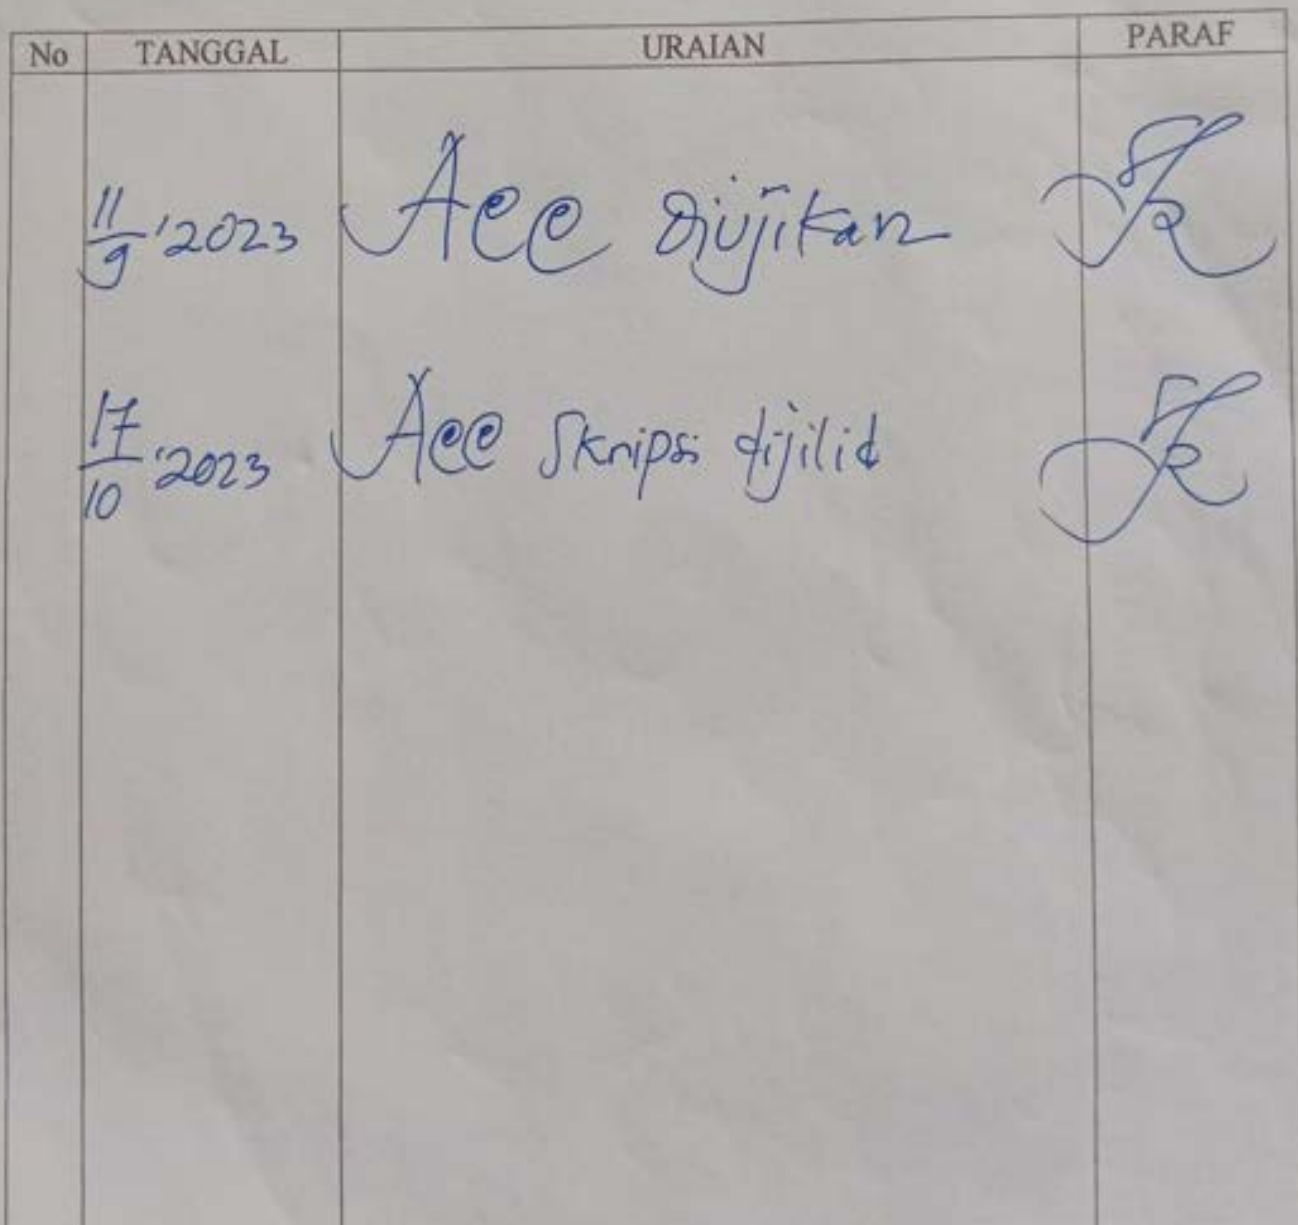 No TANGGAL URAIAN PARAF
11/9 '2023 Acc diujikan
17/10 '2023 Acc Skripsi dijilid